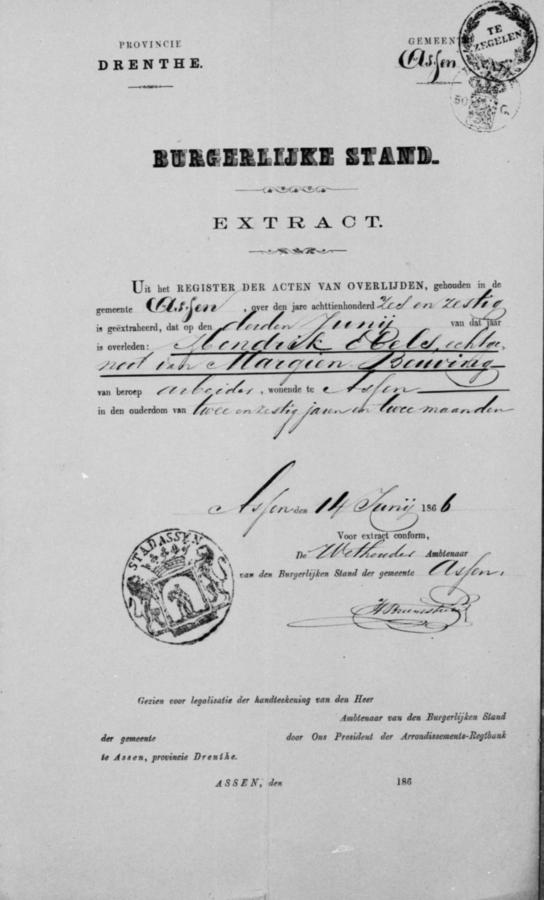 PROVINCIE
DRENTHE.
GEMEENTE
Assen
TE
ZEGELEN
50 C.
BURGERLIJKE STAND.
EXTRACT.
Uit het REGISTER DER ACTEN VAN OVERLIJDEN, gehouden in de
gemeente Assen, over den jare achttienhonderd zes en zestig
is geëxtraheerd, dat op den derden Junij van dat jaar
is overleden: Hendrik Eels, echtge-
noot van Margien Beuving
van beroep arbeider, wonende te Assen
in den ouderdom van twee en zestig jaren en twee maanden
Assen den 14 Junij 1866
Voor extract conform,
De Wethouder Ambtenaar
van den Burgerlijken Stand der gemeente Assen.
STAD ASSEN
Gezien voor legalisatie der handteekening van den Heer
Ambtenaar van den Burgerlijken Stand
der gemeente door Ons President der Arrondissements-Regtbank
te Assen, provincie Drenthe.
ASSEN, den 186